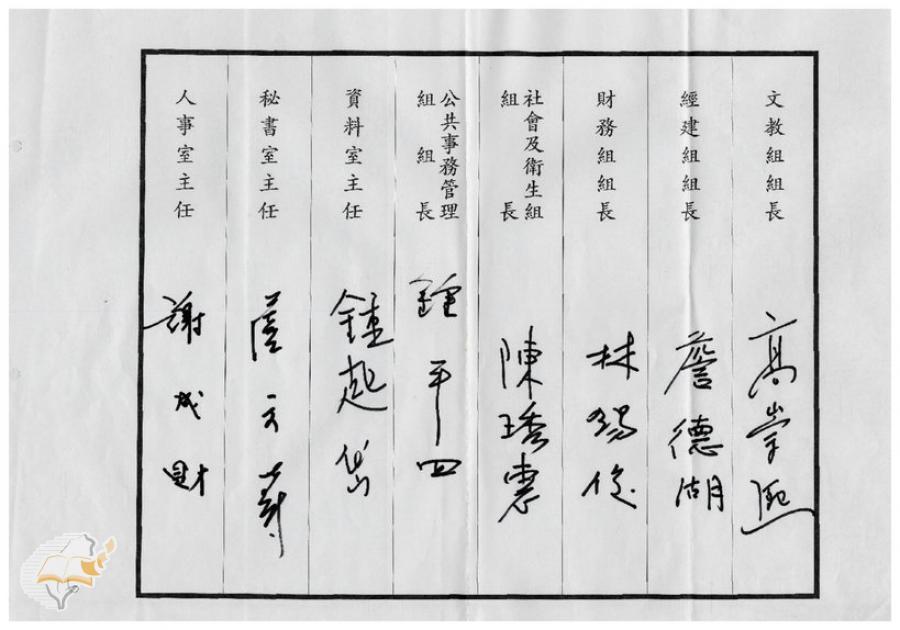 文教組組長
高崇熙
經建組組長
詹德湖
財務組組長
林錫俊
社會及衛生組
組長
陳琇惠
公共事務管理
組組長
鍾平四
資料室主任
鍾起岱
秘書室主任
人事室主任
謝成財